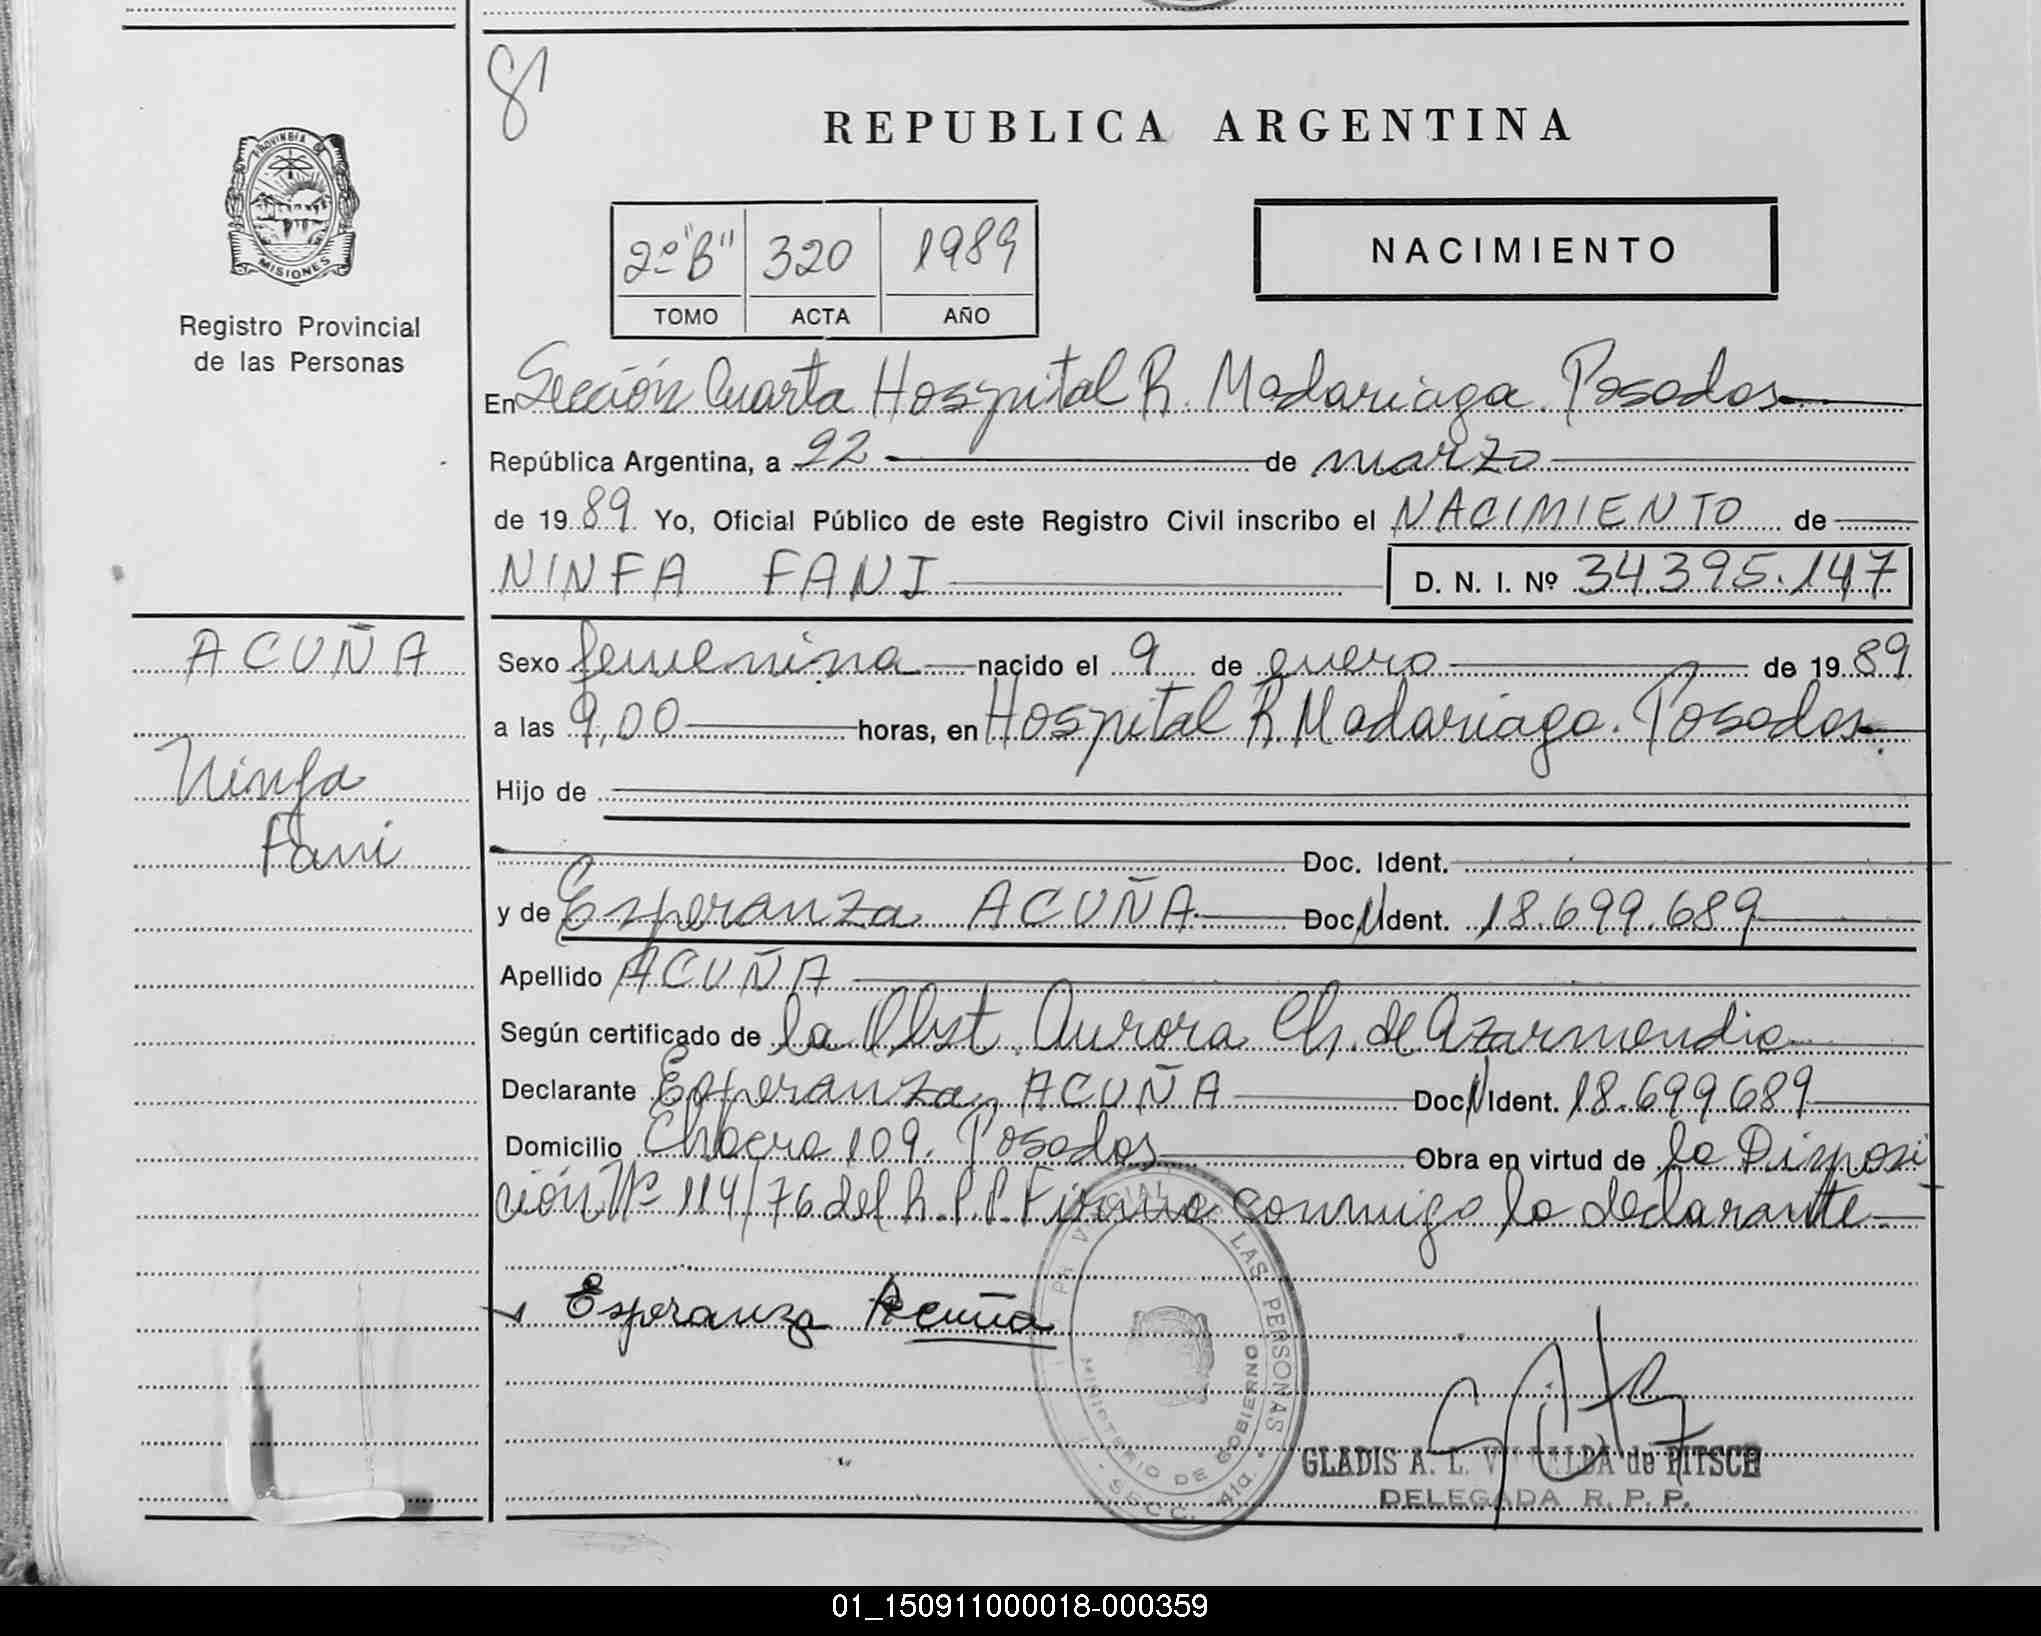 81
REPUBLICA ARGENTINA
PROVINCIA DE
MISIONES
Registro Provincial
de las Personas
2º "B" 320 1989
TOMO ACTA AÑO
NACIMIENTO
En Sección Cuarta Hospital R. Madariaga. Posadas
República Argentina, a 22 de marzo
de 1989 Yo, Oficial Público de este Registro Civil inscribo el NACIMIENTO de
NINFA FANI D. N. I. Nº 34.395.147
ACUÑA
Ninfa
Fani
Sexo femenina nacido el 9 de enero de 1989
a las 9,00 horas, en Hospital R. Madariaga. Posadas
Hijo de
Doc. Ident.
y de Esperanza ACUÑA Doc. N Ident. 18.699.689
Apellido ACUÑA
Según certificado de la Obst. Aurora Ch. de Azarmendia
Declarante Esperanza ACUÑA Doc. N Ident. 18.699689
Domicilio Chacra 109. Posadas Obra en virtud de la Disposi
ción Nº 114/76 del R.P.P. Firma conmigo la declarante
Esperanza Acuña
LAS PERSONAS
MINISTERIO DE GOBIERNO
GLADIS A. L. de PITSCH
DELEGADA R. P. P.
01_150911000018-000359